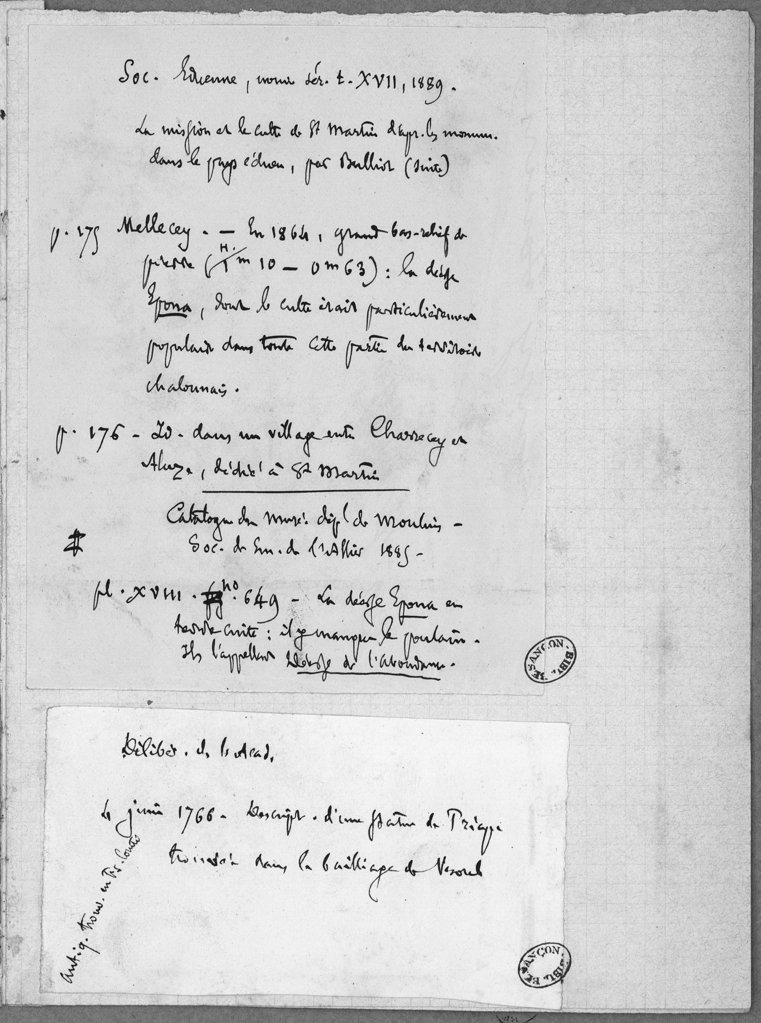 Soc. Eduenne, nouv. sér. t. XVII, 1889.
La mission et le culte de St Martin d'apr. les monum.
dans le pays éduen, par Bulliot (suite)
p. 175 Mellecey. — En 1864, grand bas-relief de
pierre (H. 1m 10 — 0m 63) : la déesse
Epona, dont le culte était particulièrement
populaire dans toute cette partie du territoire
chalonnais.
p. 176 - Id. dans un village entre Charrecey et
Aluze, dédié à St Martin
Catalogue du musée dépl de Moulins —
Soc. d'Em. de l'Allier 1885 —
pl. XVIII. no. 649 — La déesse Epona en
terre cuite : il y manque le poulain.
Ils l'appellent Déesse de l'abondance.
BESANÇON. BIBL.
Délibér. de l'Acad.
4 juin 1766 - Descript. d'une statue de Priape
trouvée dans le bailliage de Vesoul
Antiq. trouv. en Fr. Comté
BESANÇON. BIBL.